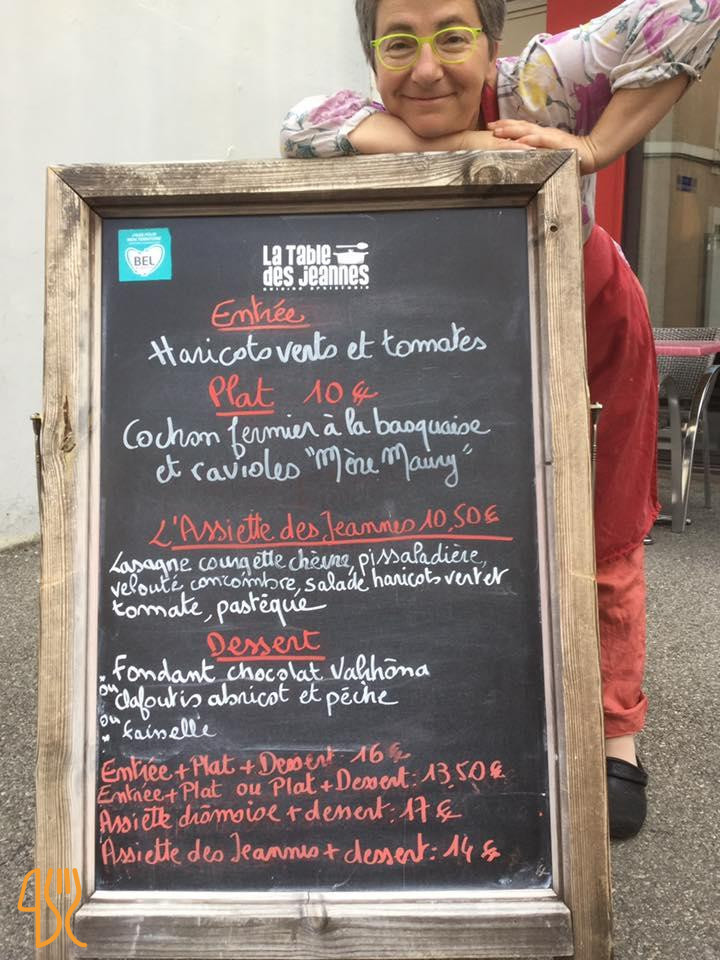 BEL
La Table
des Jeannes
Entrée
Haricots verts et tomates
Plat 10 €
Cochon fermier à la basquaise
et ravioles "Mère Maury"
L'Assiette des Jeannes 10,50 €
Lasagne courgette chèvre, pissaladière,
velouté concombre, salade haricots vert et
tomate, pastèque
Dessert
• Fondant chocolat Valrhôna
ou
• Clafoutis abricot et pêche
ou
• faisselle
Entrée + Plat + Dessert : 16 €
Entrée + Plat ou Plat + Dessert : 13,50 €
Assiette drômoise + dessert : 17 €
Assiette des Jeannes + dessert : 14 €